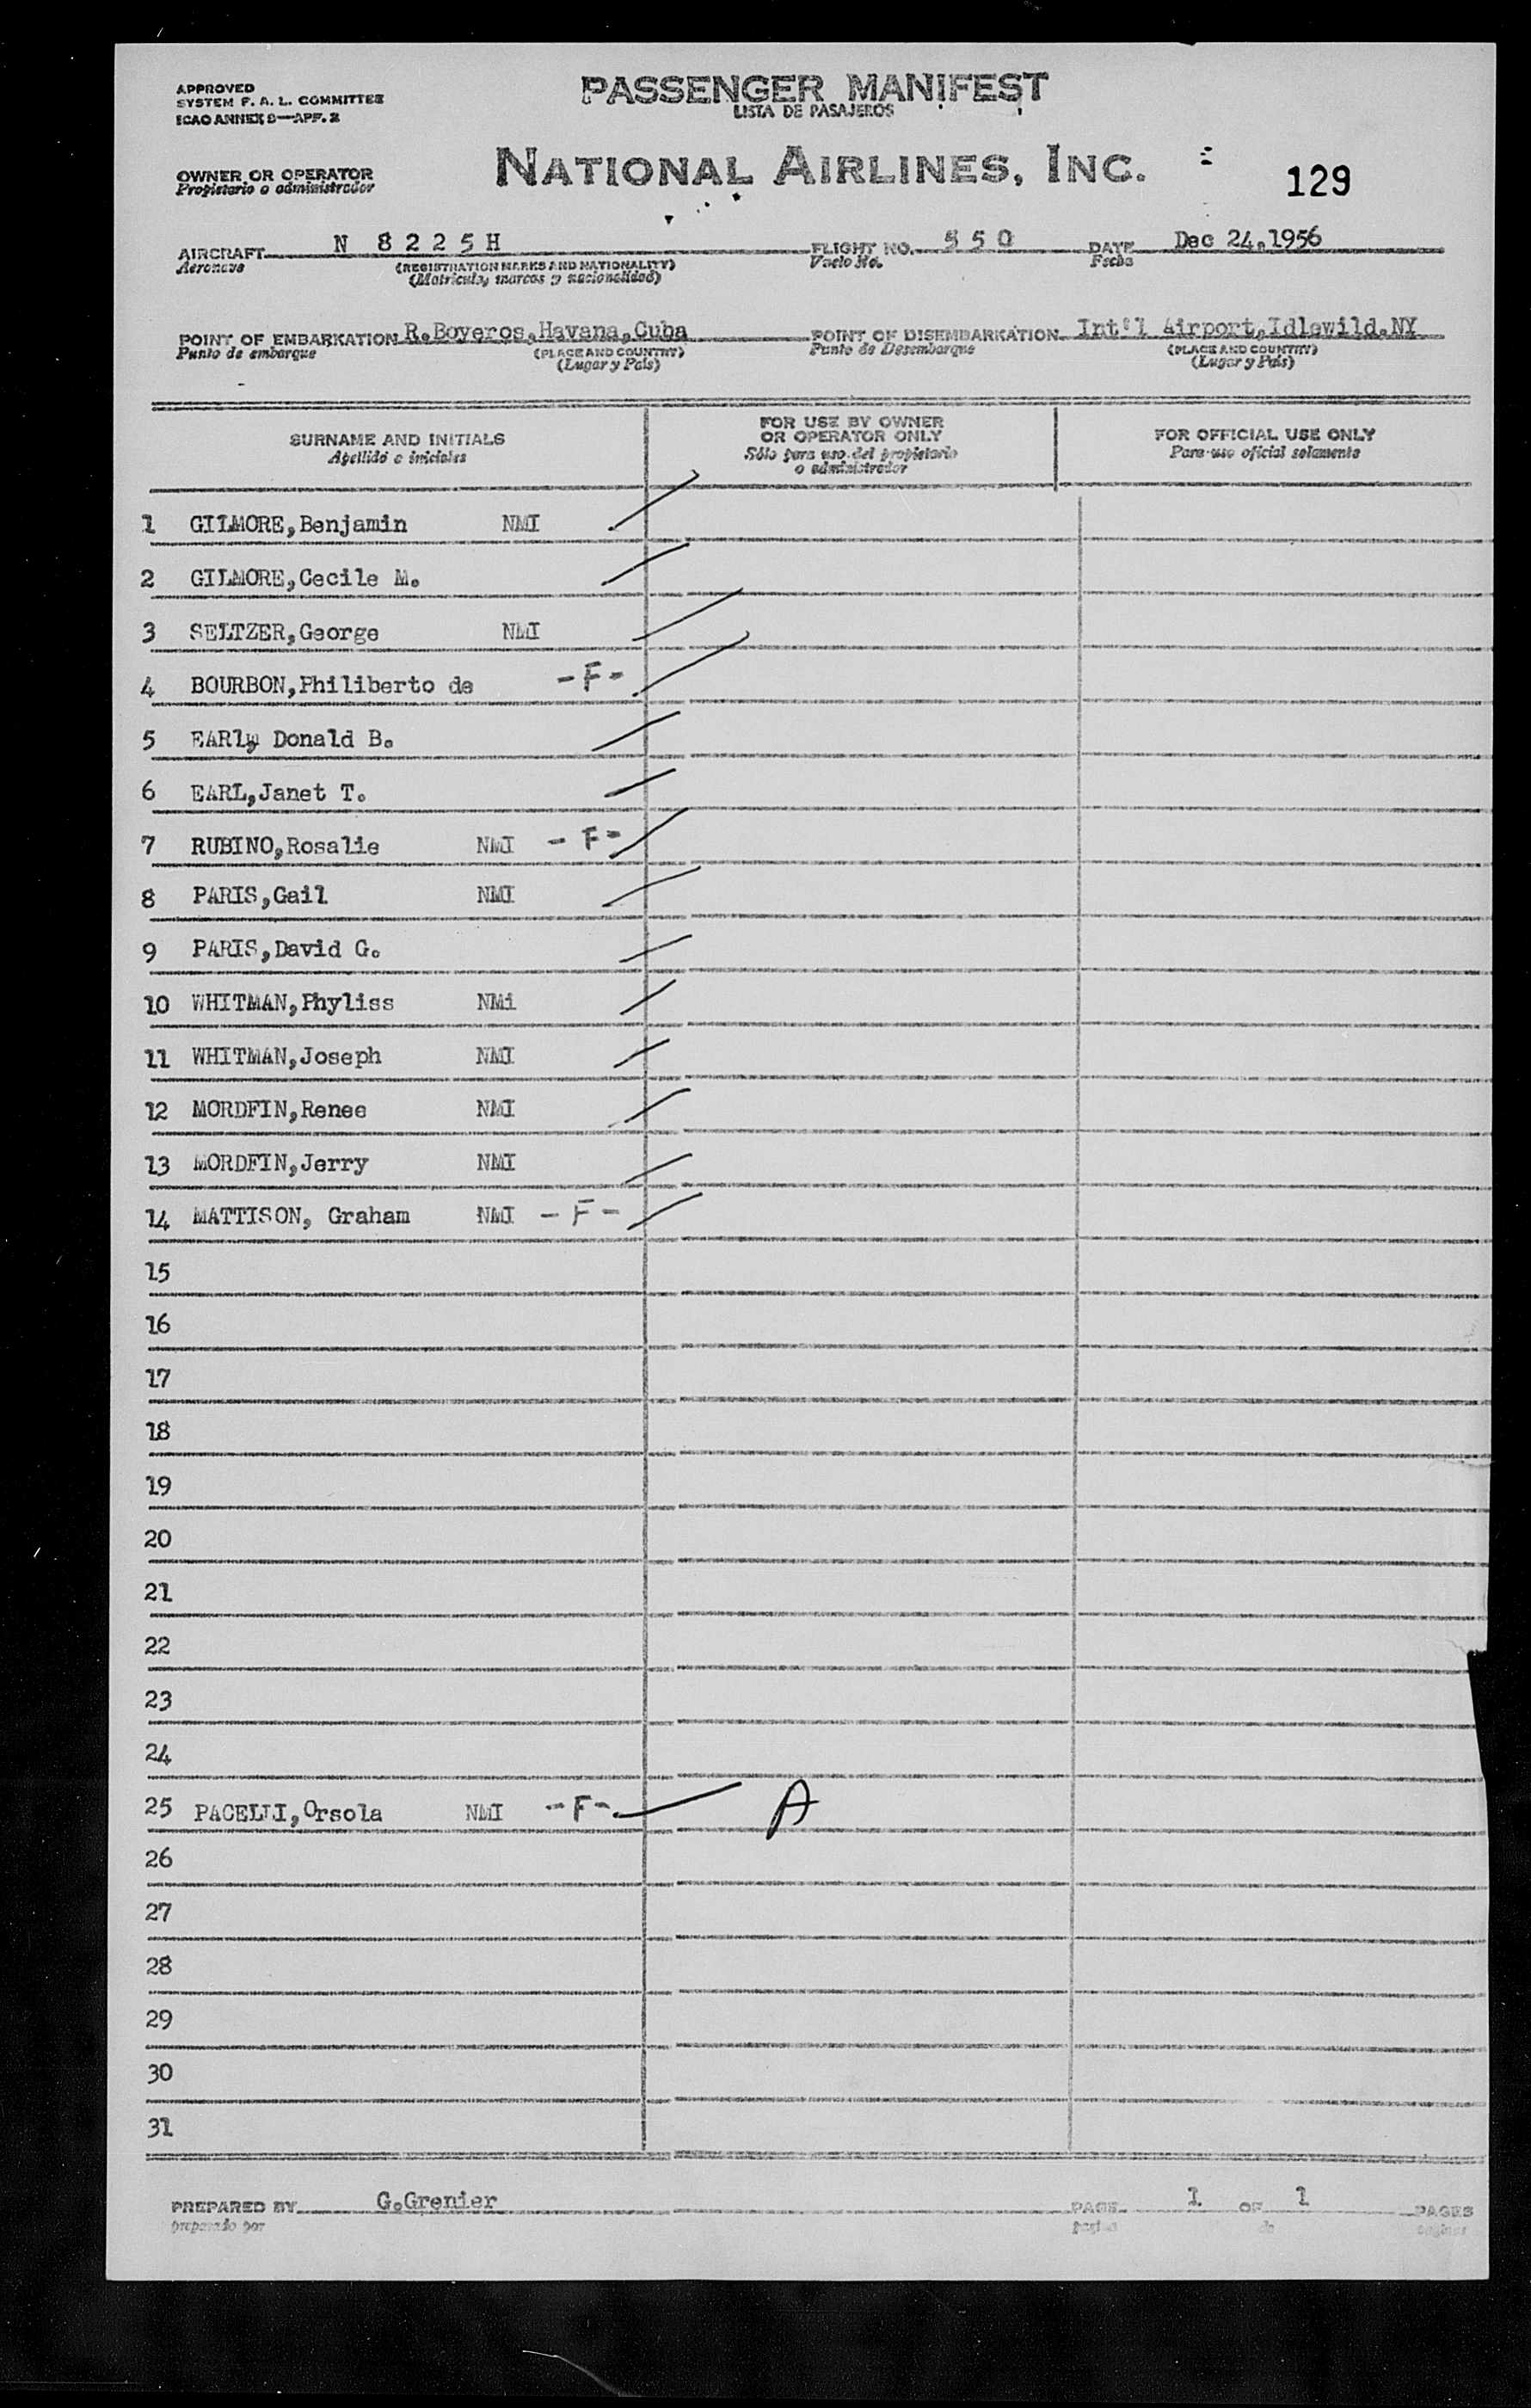 APPROVED
SYSTEM F. A. L. COMMITTEE
ICAO ANNEX 9—APP. 2
PASSENGER MANIFEST
LISTA DE PASAJEROS
OWNER OR OPERATOR
Propietario o administrador
NATIONAL AIRLINES, INC.
129
AIRCRAFT N 8225H FLIGHT NO. 550 DATE Dec 24,1956
Aeronave (REGISTRATION MARKS AND NATIONALITY) Vuelo No. Fecha
(Matricula, marcas y nacionalidad)
POINT OF EMBARKATION R.Boyeros,Havana,Cuba POINT OF DISEMBARKATION Int'l Airport,Idlewild,NY
Punto de embarque (PLACE AND COUNTRY) Punto de Desembarque (PLACE AND COUNTRY)
(Lugar y País) (Lugar y País)
SURNAME AND INITIALS
Apellido e iniciales
FOR USE BY OWNER
OR OPERATOR ONLY
Sólo para uso del propietario
o administrador
FOR OFFICIAL USE ONLY
Para uso oficial solamente
1 GILMORE,Benjamin NMI
2 GILMORE,Cecile M.
3 SELTZER,George NMI
4 BOURBON,Philiberto de -F-
5 EARl, Donald B.
6 EARL,Janet T.
7 RUBINO,Rosalie NMI -F-
8 PARIS,Gail NMI
9 PARIS,David G.
10 WHITMAN,Phyliss NMi
11 WHITMAN,Joseph NMI
12 MORDFIN,Renee NMI
13 MORDFIN,Jerry NMI
14 MATTISON, Graham NMI -F-
15
16
17
18
19
20
21
22
23
24
25 PACELLI,Orsola NMI -F- A
26
27
28
29
30
31
PREPARED BY G.Grenier PAGE 1 OF 1 PAGES
preparado por pagina de paginas